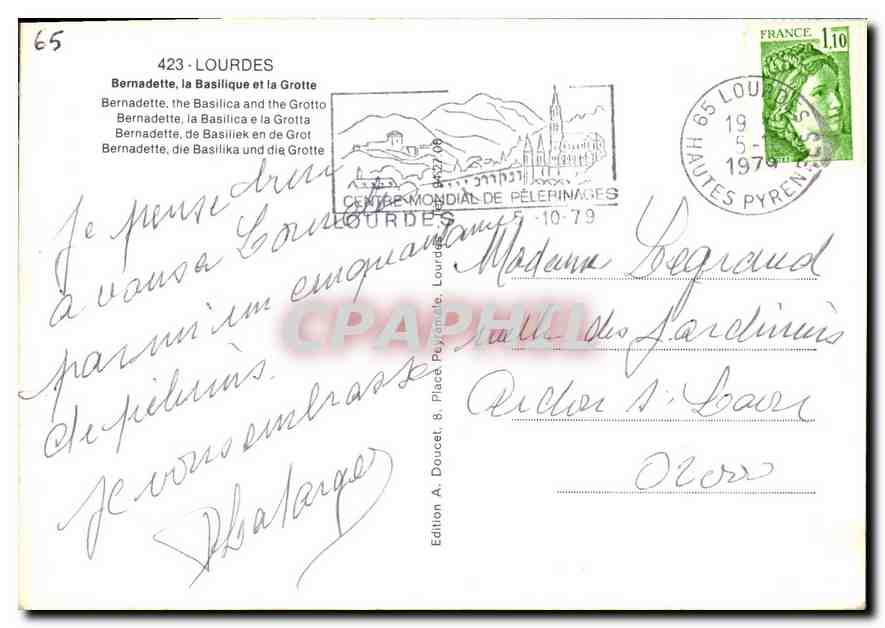 65
423 - LOURDES
Bernadette, la Basilique et la Grotte
Bernadette, the Basilica and the Grotto
Bernadette, la Basilica e la Grotta
Bernadette, de Basiliek en de Grot
Bernadette, die Basilika und die Grotte
CENTRE MONDIAL DE PÈLERINAGES
LOURDES 5-10-79
65 LOURDES
19
5-
1979
HAUTES PYRENEES
FRANCE 1,10
Je pense bien
à vous à Lourdes
parmi un cinquantaine
de pèlerins.
Je vous embrasse
Edition A. Doucet, 8, Place Peyramale, Lourdes. Tel. 94.27.08
Madame Legrand
ruelle des Jardiniers
02100
CPAPHIL